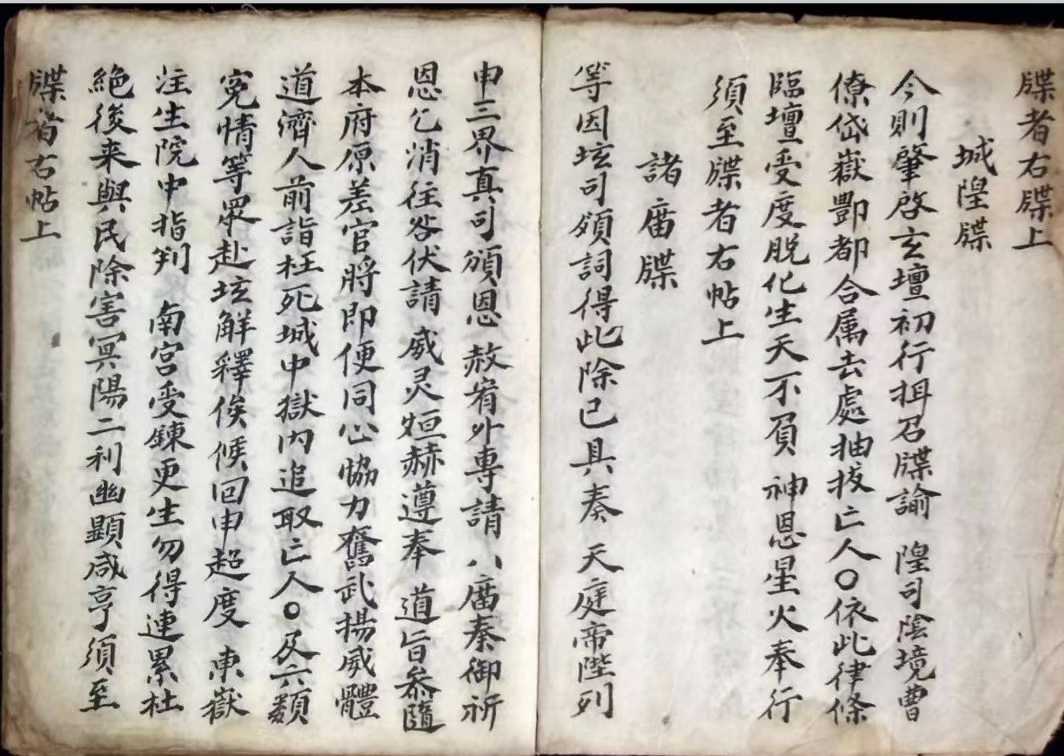 牒者右牒上
城隍牒
今則肇啓玄壇初行揖召牒諭 隍司陰境曹
僚岱嶽酆都合属去處抽拔亡人○依此律條
臨壇受度脫化生天不負 神恩星火奉行
須至牒者右帖上
諸庙牒
等因垓司頒詞得此除已具奏 天庭帝陛列
申三界真司頒恩赦宥外專請 八庿奏御祈
恩乞消往咎伏請 威灵烜赫遵奉 道旨叅隨
本府原差官將即便同心協力奮武揚威體
道濟人前詣枉死城中獄内追取亡人○及六類
寃情等眾赴垓解釋俟候回申超度 東嶽
注生院中指判 南宮受鍊更生勿得連累杜
絶後来與民除害冥陽二利幽顯咸亨須至
牒者右帖上